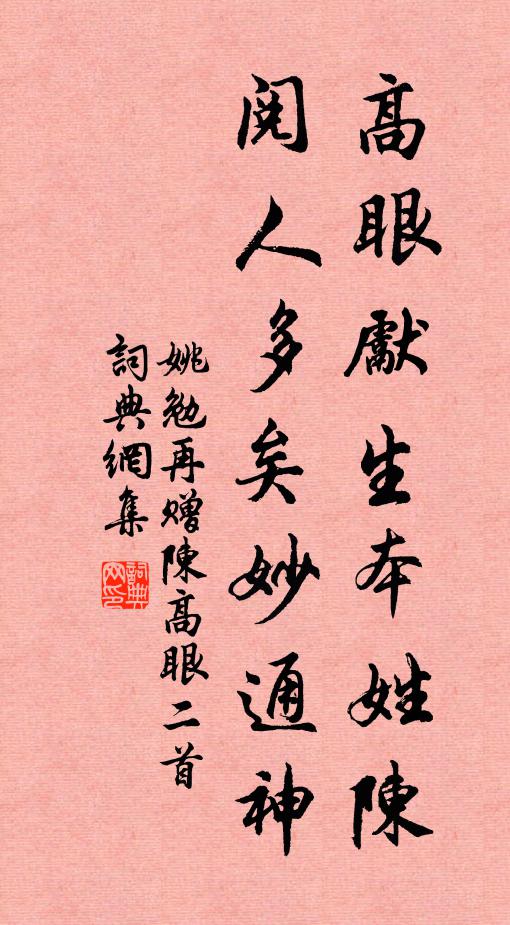 高眼獻生本姓陳
閱人多矣妙通神
姚勉再贈陳高眼二首
詞典網集
詞典
网印